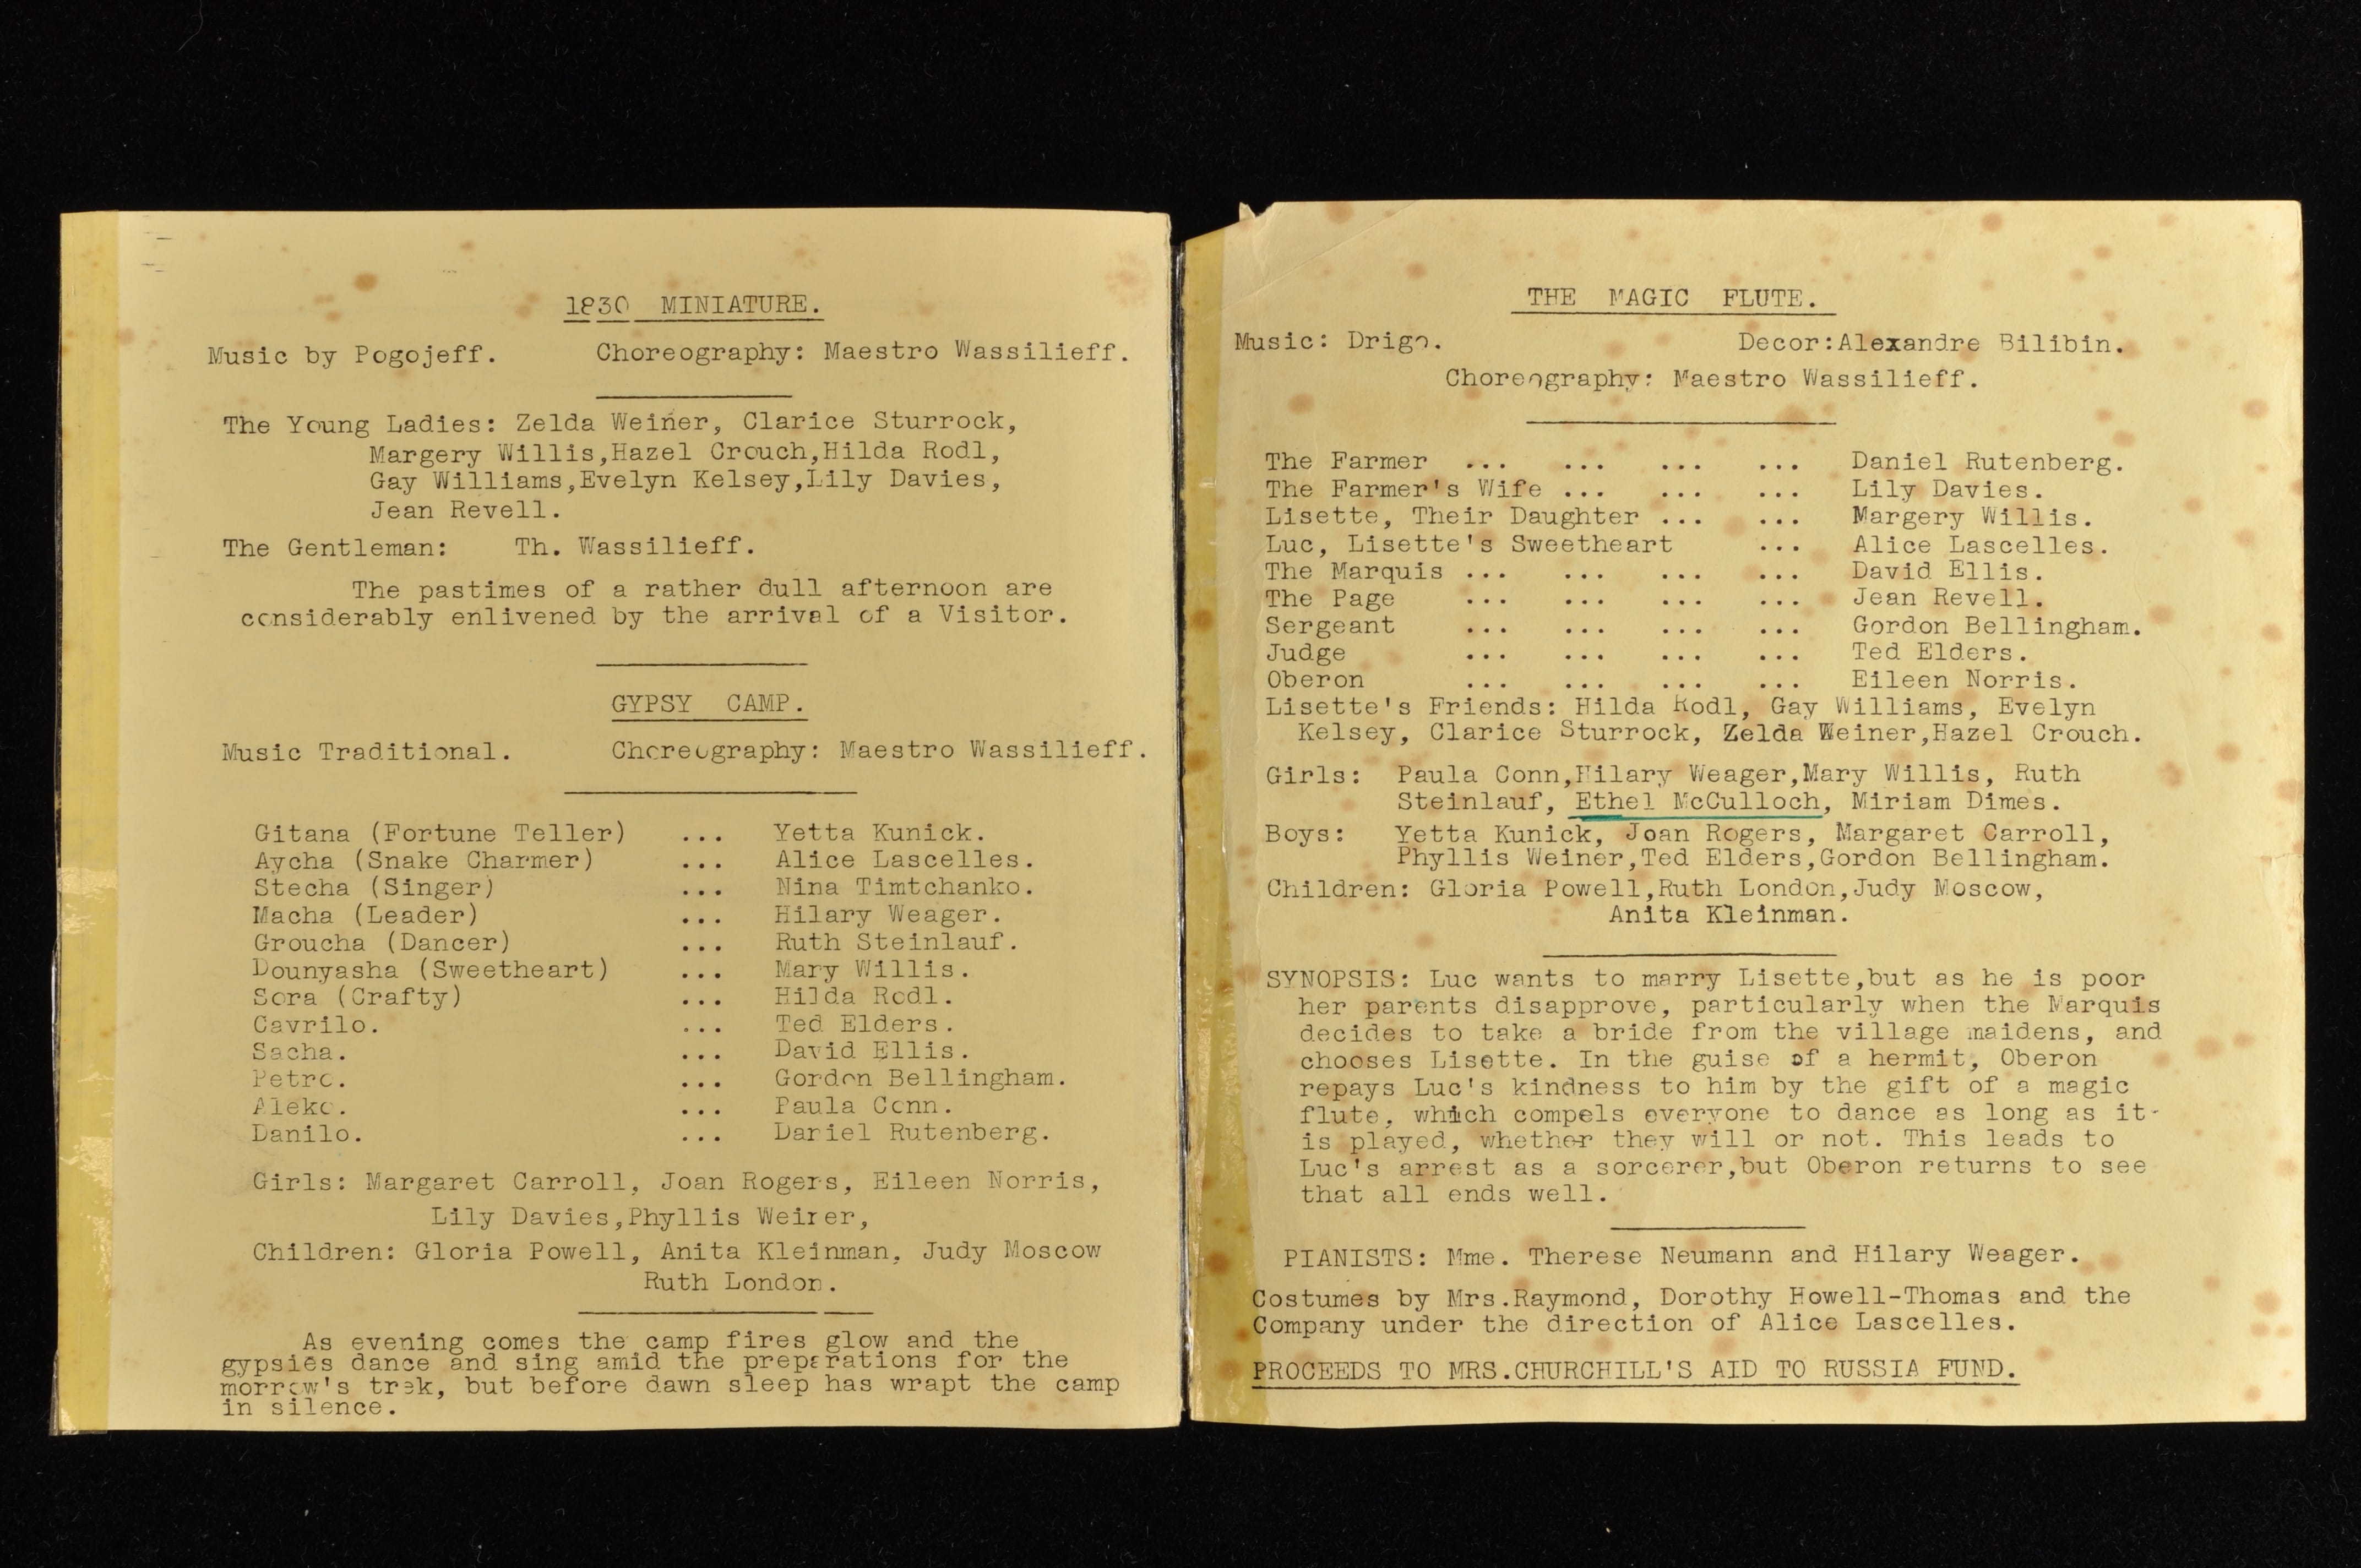 1830 MINIATURE.
Music by Pogojeff. Choreography: Maestro Wassilieff.
The Young Ladies: Zelda Weiner, Clarice Sturrock,
Margery Willis,Hazel Crouch,Hilda Rodl,
Gay Williams,Evelyn Kelsey,Lily Davies,
Jean Revell.
The Gentleman: Th. Wassilieff.
The pastimes of a rather dull afternoon are
considerably enlivened by the arrival of a Visitor.
GYPSY CAMP.
Music Traditional. Choreography: Maestro Wassilieff.
Gitana (Fortune Teller) ... Yetta Kunick.
Aycha (Snake Charmer) ... Alice Lascelles.
Stecha (Singer) ... Nina Timtchanko.
Macha (Leader) ... Hilary Weager.
Groucha (Dancer) ... Ruth Steinlauf.
Dounyasha (Sweetheart) ... Mary Willis.
Sora (Crafty) ... Hilda Rodl.
Cavrilo. ... Ted Elders.
Sacha. ... David Ellis.
Petro. ... Gordon Bellingham.
Aleko. ... Paula Conn.
Danilo. ... Daniel Rutenberg.
Girls: Margaret Carroll, Joan Rogers, Eileen Norris,
Lily Davies,Phyllis Weiner,
Children: Gloria Powell, Anita Kleinman, Judy Moscow
Ruth London.
As evening comes the camp fires glow and the
gypsies dance and sing amid the preparations for the
morrow's trek, but before dawn sleep has wrapt the camp
in silence.
THE MAGIC FLUTE.
Music: Drigo. Decor:Alexandre Bilibin.
Choreography: Maestro Wassilieff.
The Farmer ... ... ... ... Daniel Rutenberg.
The Farmer's Wife ... ... ... Lily Davies.
Lisette, Their Daughter ... ... Margery Willis.
Luc, Lisette's Sweetheart ... Alice Lascelles.
The Marquis ... ... ... ... David Ellis.
The Page ... ... ... ... Jean Revell.
Sergeant ... ... ... ... Gordon Bellingham.
Judge ... ... ... ... Ted Elders.
Oberon ... ... ... ... Eileen Norris.
Lisette's Friends: Hilda Rodl, Gay Williams, Evelyn
Kelsey, Clarice Sturrock, Zelda Weiner,Hazel Crouch.
Girls: Paula Conn,Hilary Weager,Mary Willis, Ruth
Steinlauf, Ethel McCulloch, Miriam Dimes.
Boys: Yetta Kunick, Joan Rogers, Margaret Carroll,
Phyllis Weiner,Ted Elders,Gordon Bellingham.
Children: Gloria Powell,Ruth London,Judy Moscow,
Anita Kleinman.
SYNOPSIS: Luc wants to marry Lisette,but as he is poor
her parents disapprove, particularly when the Marquis
decides to take a bride from the village maidens, and
chooses Lisette. In the guise of a hermit, Oberon
repays Luc's kindness to him by the gift of a magic
flute, which compels everyone to dance as long as it
is played, whether they will or not. This leads to
Luc's arrest as a sorcerer,but Oberon returns to see
that all ends well.
PIANISTS: Mme. Therese Neumann and Hilary Weager.
Costumes by Mrs.Raymond, Dorothy Howell-Thomas and the
Company under the direction of Alice Lascelles.
PROCEEDS TO MRS.CHURCHILL'S AID TO RUSSIA FUND.